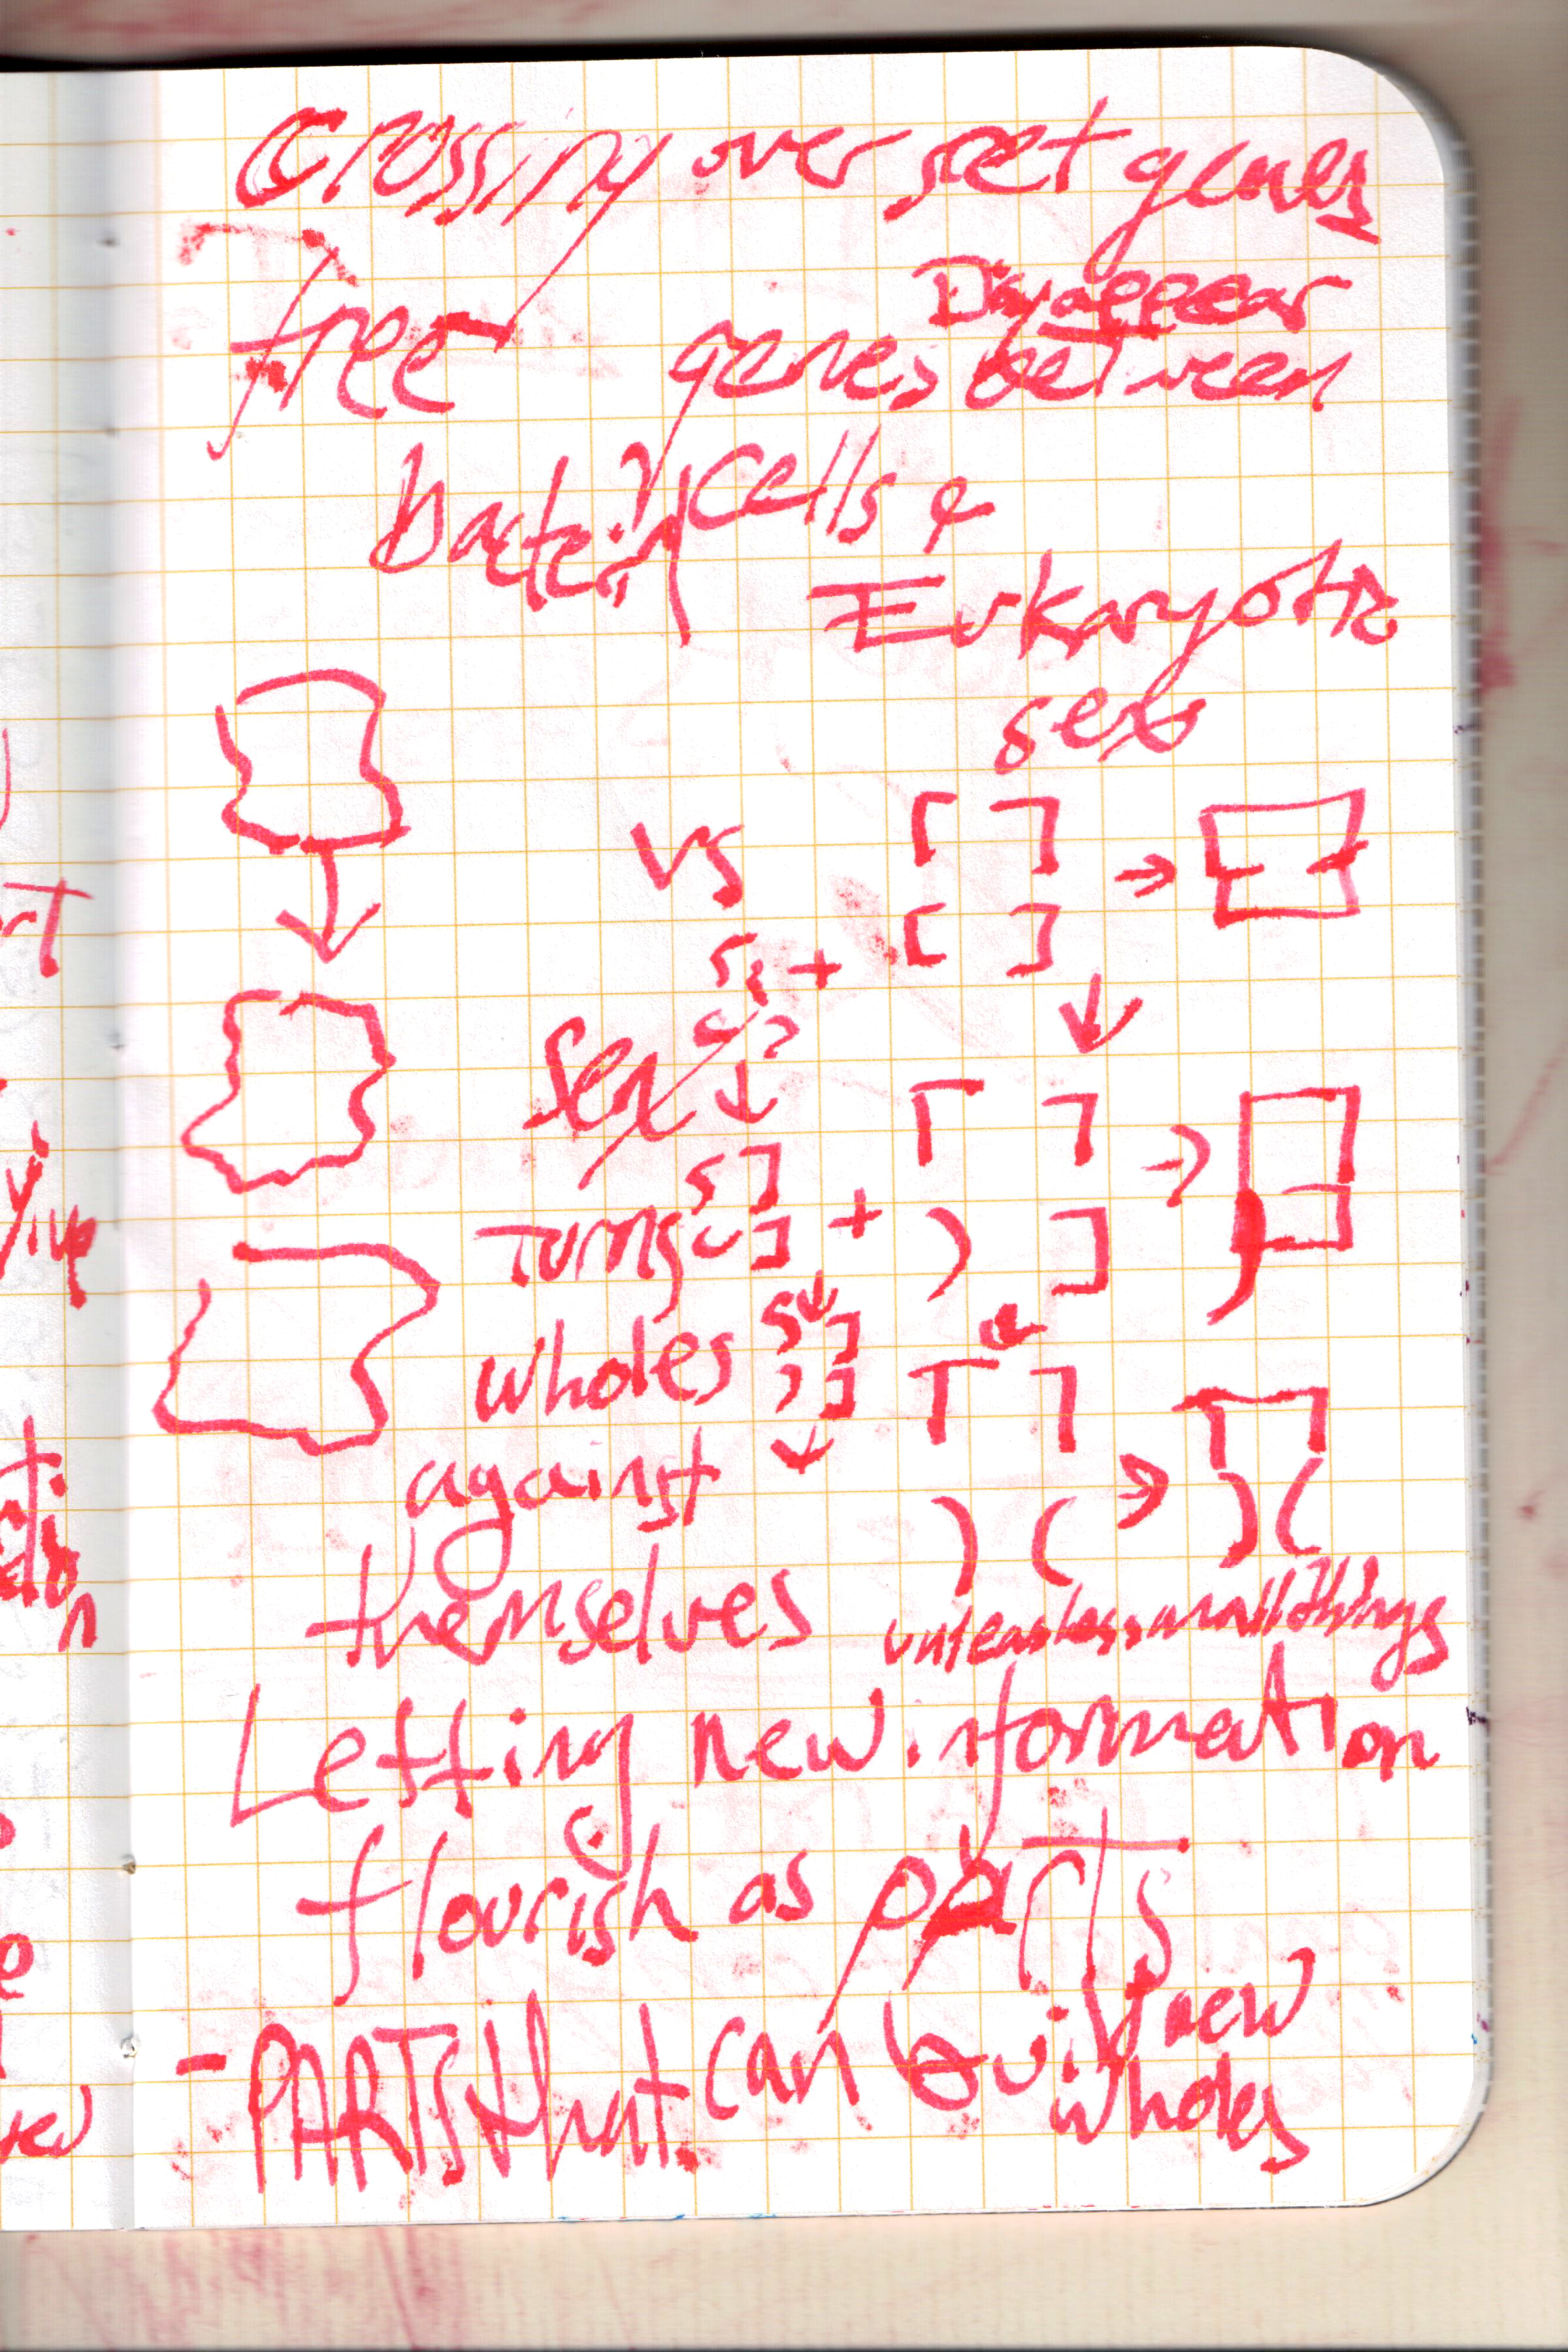 Crossing over set genes
free genes Disappear
between
bacteria cells &
Eukaryotic
sex
vs
Sex
Turns
wholes
against
themselves
unleashes small things
Letting new information
flourish as parts
- PARTS that can build new
wholes